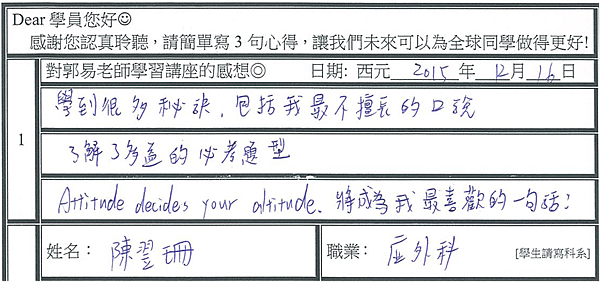 Dear 學員您好☺
感謝您認真聆聽，請簡單寫 3 句心得，讓我們未來可以為全球同學做得更好!
對郭易老師學習講座的感想◎ 日期: 西元 2015 年 12 月 16 日
1
學到很多秘訣，包括我最不擅長的口說
了解了多益的必考題型
Attitude decides your altitude. 將成為我最喜歡的一句話!
姓名： 陳翌珊 職業： 應外科 [學生請寫科系]